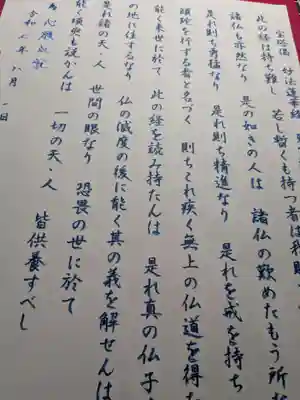 宝塔偈 妙法蓮華経
此の経は持ち難し 若し暫くも持つ者は我即
諸仏も亦然なり 是の如きの人は 諸仏の歎めたもう所な
是れ則ち勇猛なり 是れ則ち精進なり 是れを戒を持ち
頭陀を行ずる者と名づく 則ちこれ疾く無上の仏道を得た
能く来世に於て 此の経を読み持たんは 是れ真の仏子
の地に住するなり 仏の滅度の後に能く其の義を解せんは
是れ諸の天・人 世間の眼なり 恐畏の世に於て
能く須臾も説かんは 一切の天・人 皆供養すべし
為 心願成就
令和 年 八月 一日